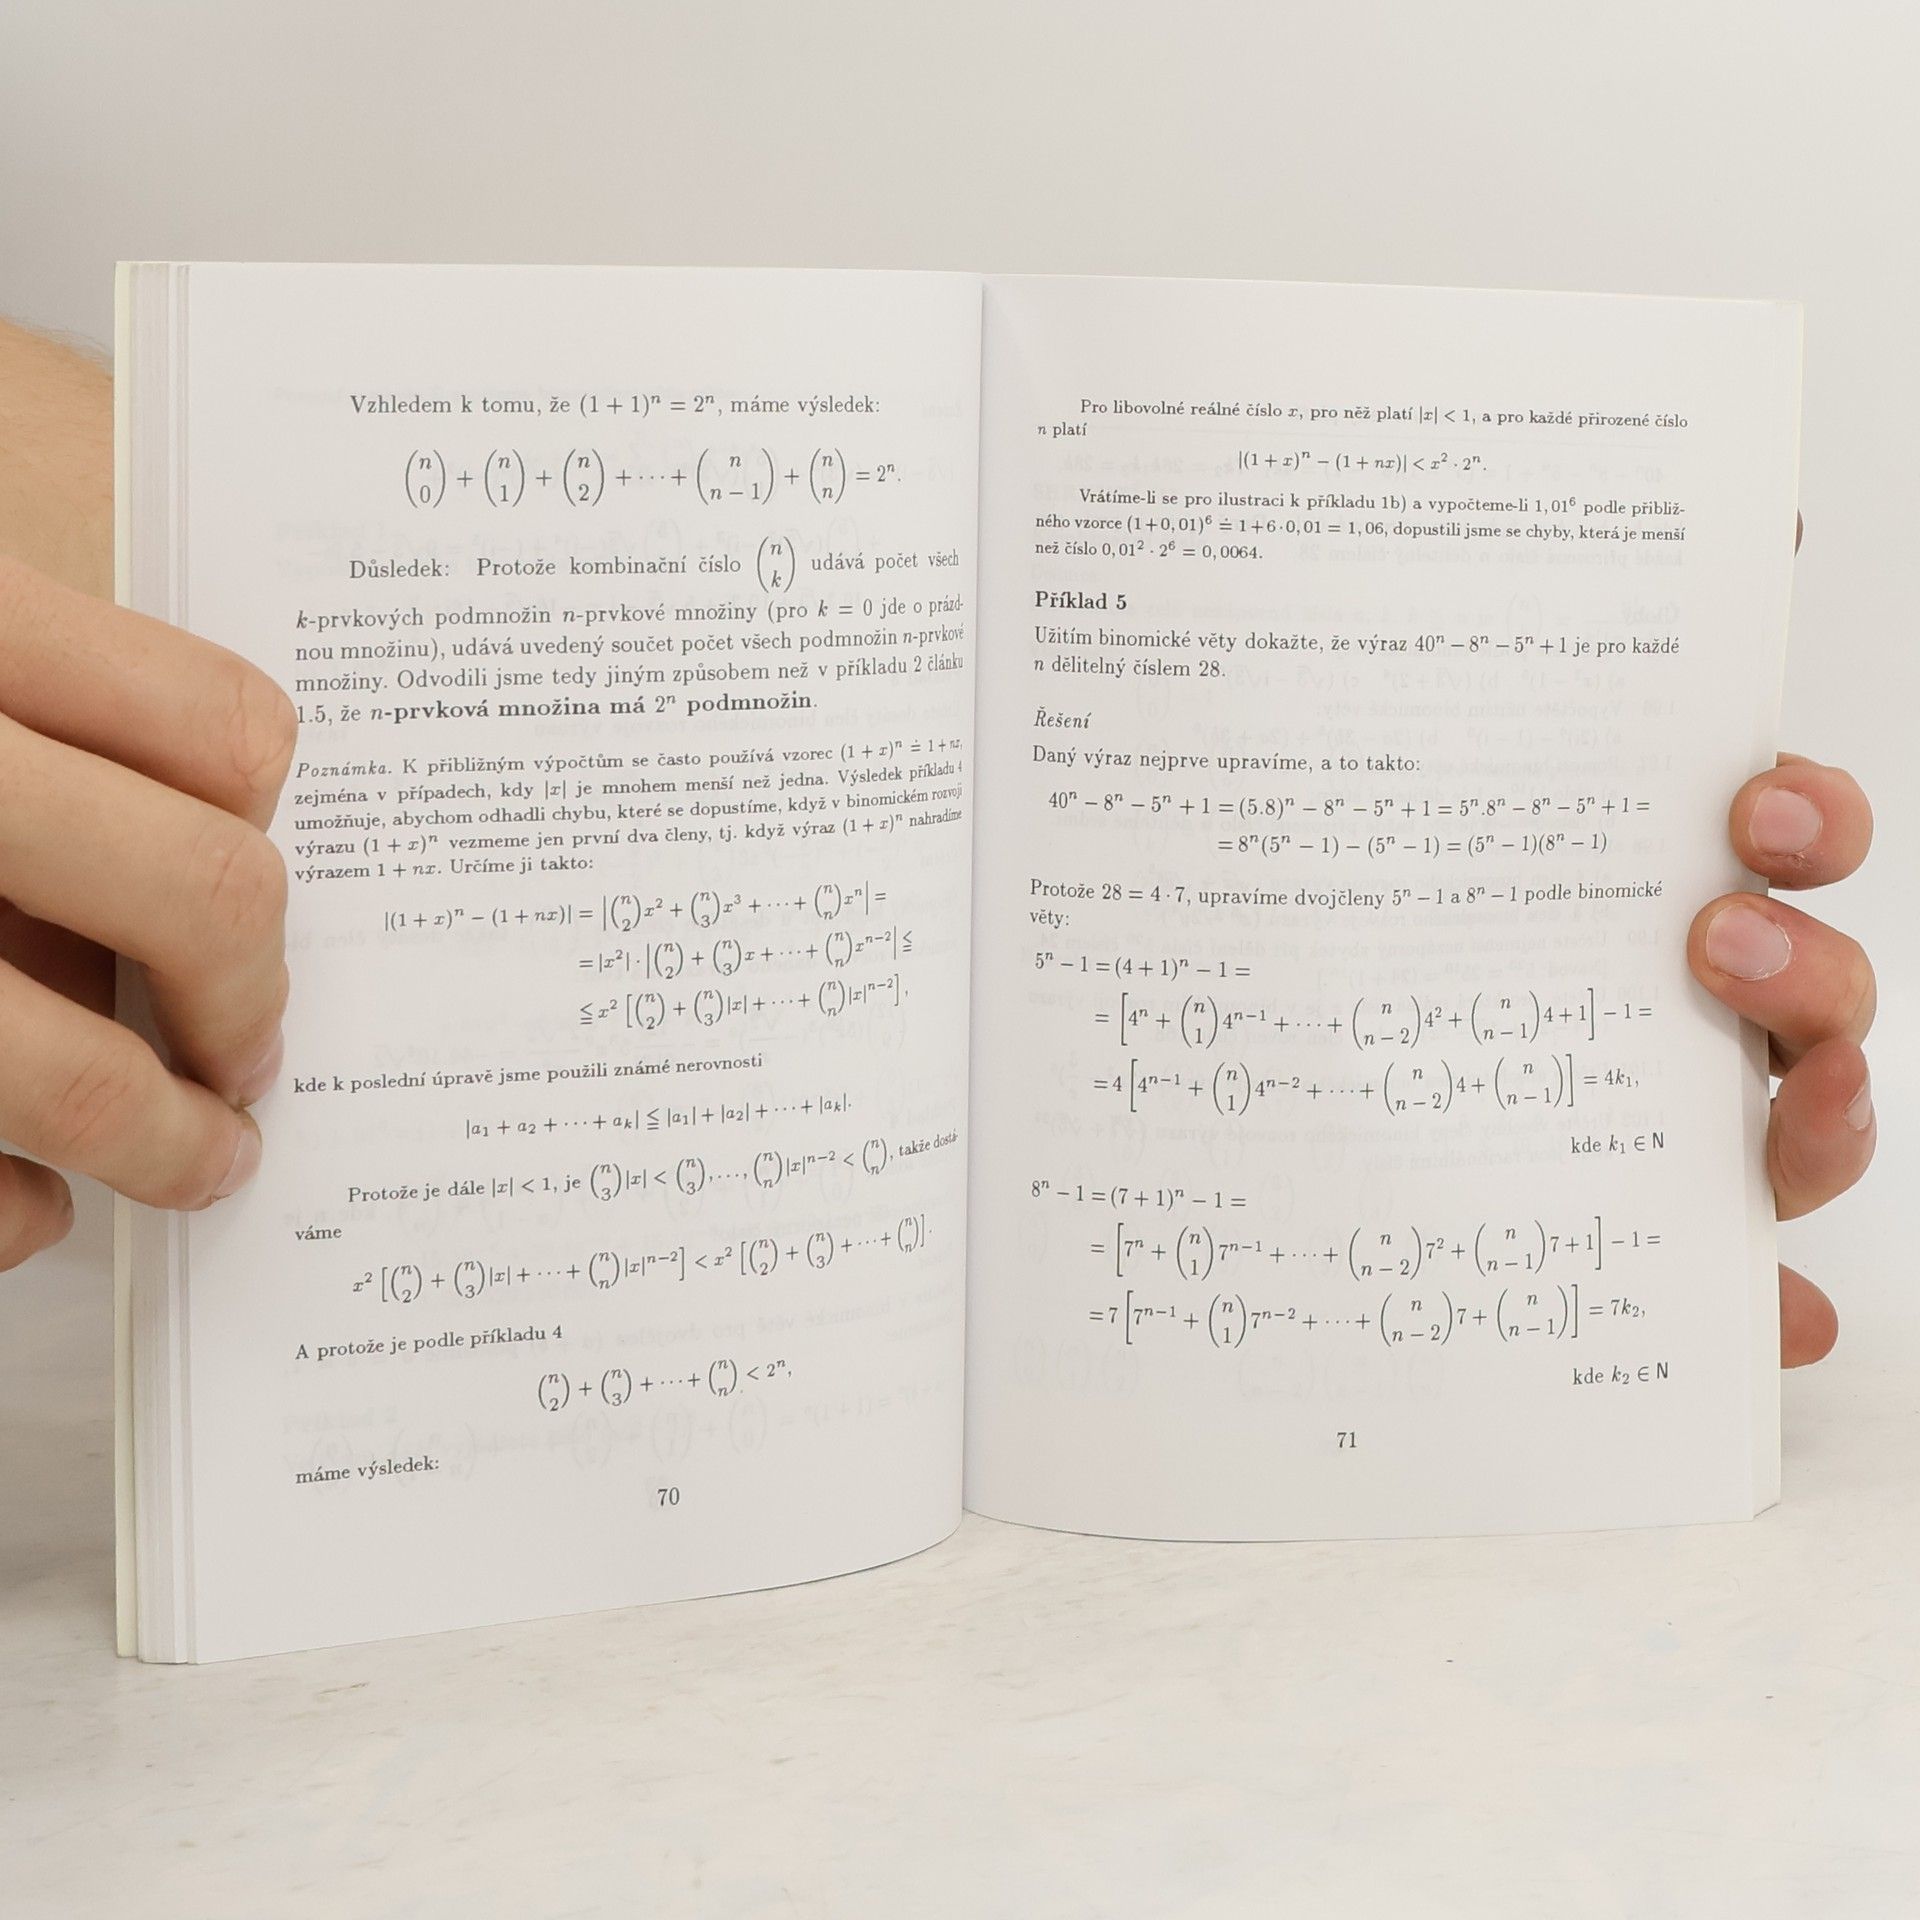 Vzhledem k tomu, že (1 + 1)ⁿ = 2ⁿ, máme výsledek:
(n 0) + (n 1) + (n 2) + ··· + (n n − 1) + (n n) = 2ⁿ.
Důsledek: Protože kombinační číslo (n k) udává počet všech
k-prvkových podmnožin n-prvkové množiny (pro k = 0 jde o prázd-
nou množinu), udává uvedený součet počet všech podmnožin n-prvkové
množiny. Odvodili jsme tedy jiným způsobem než v příkladu 2 článku
1.5, že n-prvková množina má 2ⁿ podmnožin.
Poznámka. K přibližným výpočtům se často používá vzorec (1 + x)ⁿ ≐ 1 + nx,
zejména v případech, kdy |x| je mnohem menší než jedna. Výsledek příkladu 4
umožňuje, abychom odhadli chybu, které se dopustíme, když v binomickém rozvoji
výrazu (1 + x)ⁿ vezmeme jen první dva členy, tj. když výraz (1 + x)ⁿ nahradíme
výrazem 1 + nx. Určíme ji takto:
|(1 + x)ⁿ − (1 + nx)| = |(n 2)x² + (n 3)x³ + ··· + (n n)xⁿ| =
= |x²| · |(n 2) + (n 3)x + ··· + (n n)xⁿ⁻²| ≦
≦ x² [(n 2) + (n 3)|x| + ··· + (n n)|x|ⁿ⁻²],
kde k poslední úpravě jsme použili známé nerovnosti
|a₁ + a₂ + ··· + aₖ| ≦ |a₁| + |a₂| + ··· + |aₖ|.
Protože je dále |x| < 1, je (n 3)|x| < (n 3), ..., (n n)|x|ⁿ⁻² < (n n), takže dostá-
váme
x² [(n 2) + (n 3)|x| + ··· + (n n)|x|ⁿ⁻²] < x² [(n 2) + (n 3) + ··· + (n n)].
A protože je podle příkladu 4
(n 2) + (n 3) + ··· + (n n) < 2ⁿ,
máme výsledek:
70
Pro libovolné reálné číslo x, pro něž platí |x| < 1, a pro každé přirozené číslo
n platí
|(1 + x)ⁿ − (1 + nx)| < x² · 2ⁿ.
Vrátíme-li se pro ilustraci k příkladu 1b) a vypočteme-li 1,01⁶ podle přibliž-
ného vzorce (1+0,01)⁶ ≐ 1+6·0,01 = 1,06, dopustili jsme se chyby, která je menší
než číslo 0,01² · 2⁶ = 0,0064.
Příklad 5
Užitím binomické věty dokažte, že výraz 40ⁿ − 8ⁿ − 5ⁿ + 1 je pro každé
n dělitelný číslem 28.
Řešení
Daný výraz nejprve upravíme, a to takto:
40ⁿ − 8ⁿ − 5ⁿ + 1 = (5.8)ⁿ − 8ⁿ − 5ⁿ + 1 = 5ⁿ.8ⁿ − 8ⁿ − 5ⁿ + 1 =
= 8ⁿ(5ⁿ − 1) − (5ⁿ − 1) = (5ⁿ − 1)(8ⁿ − 1)
Protože 28 = 4 · 7, upravíme dvojčleny 5ⁿ − 1 a 8ⁿ − 1 podle binomické
věty:
5ⁿ − 1 = (4 + 1)ⁿ − 1 =
= [4ⁿ + (n 1)4ⁿ⁻¹ + ··· + (n n − 2)4² + (n n − 1)4 + 1] − 1 =
= 4 [4ⁿ⁻¹ + (n 1)4ⁿ⁻² + ··· + (n n − 2)4 + (n n − 1)] = 4k₁,
kde k₁ ∈ N
8ⁿ − 1 = (7 + 1)ⁿ − 1 =
= [7ⁿ + (n 1)7ⁿ⁻¹ + ··· + (n n − 2)7² + (n n − 1)7 + 1] − 1 =
= 7 [7ⁿ⁻¹ + (n 1)7ⁿ⁻² + ··· + (n n − 2)7 + (n n − 1)] = 7k₂,
kde k₂ ∈ N
71